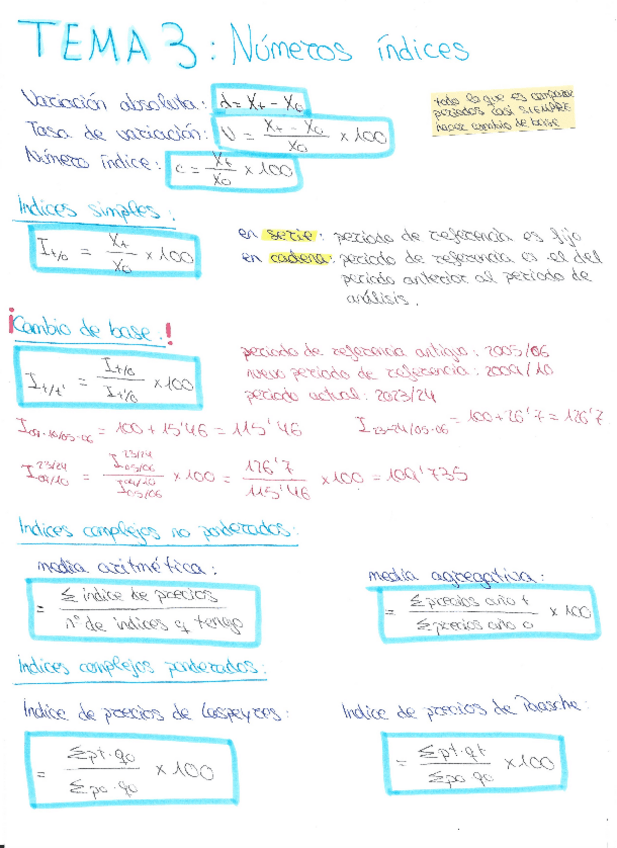 TEMA 3: Números índices
Variación absoluta: d = Xt - X0
todo lo que es comparar
periodos casi SIEMPRE
hacer cambio de base
Tasa de variación: V = (Xt - X0) / X0 × 100
Número índice: c = Xt / X0 × 100
Índices simples:
I t/0 = Xt / X0 × 100
en serie: periodo de referencia es fijo
en cadena: periodo de referencia es el del
periodo anterior al periodo de
análisis.
¡Cambio de base!
I t/t' = I t/0 / I t'/0 × 100
periodo de referencia antiguo: 2005/06
nuevo periodo de referencia: 2009/10
periodo actual: 2023/24
I 09-10/05-06 = 100 + 15'46 = 115'46
I 23-24/05-06 = 100 + 26'7 = 126'7
I 23/24 09/10 = I 23/24 05/06 / I 09/10 05/06 × 100 = 126'7 / 115'46 × 100 = 109'735
Índices complejos no ponderados:
media aritmética:
= Σ índice de precios / nº de índices q tengo
media agregativa:
= Σ precios año t / Σ precios año 0 × 100
Índices complejos ponderados:
Índice de precios de Laspeyres:
= Σ pt · q0 / Σ p0 · q0 × 100
Indice de precios de Paasche:
= Σ pt · qt / Σ p0 q0 × 100